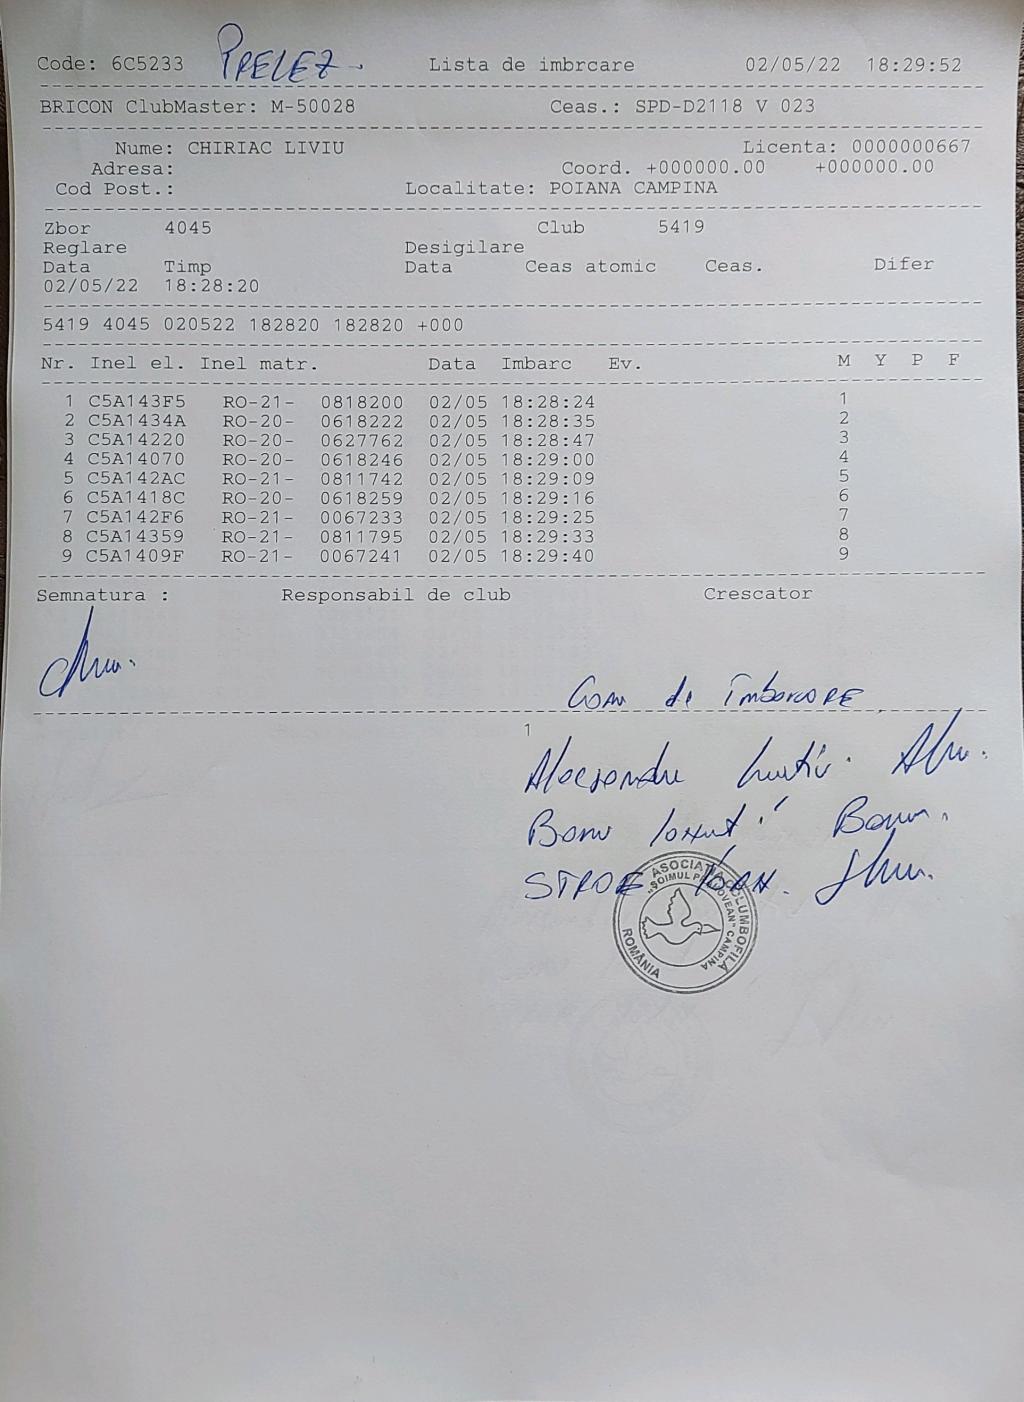 Code: 6C5233 PRELEZ Lista de imbrcare 02/05/22 18:29:52
BRICON ClubMaster: M-50028 Ceas.: SPD-D2118 V 023
Nume: CHIRIAC LIVIU Licenta: 0000000667
Adresa: Coord. +000000.00 +000000.00
Cod Post.: Localitate: POIANA CAMPINA
Zbor 4045 Club 5419
Reglare Desigilare
Data Timp Data Ceas atomic Ceas. Difer
02/05/22 18:28:20
5419 4045 020522 182820 182820 +000
Nr. Inel el. Inel matr. Data Imbarc Ev. M Y P F
1 C5A143F5 RO-21- 0818200 02/05 18:28:24 1
2 C5A1434A RO-20- 0618222 02/05 18:28:35 2
3 C5A14220 RO-20- 0627762 02/05 18:28:47 3
4 C5A14070 RO-20- 0618246 02/05 18:29:00 4
5 C5A142AC RO-21- 0811742 02/05 18:29:09 5
6 C5A1418C RO-20- 0618259 02/05 18:29:16 6
7 C5A142F6 RO-21- 0067233 02/05 18:29:25 7
8 C5A14359 RO-21- 0811795 02/05 18:29:33 8
9 C5A1409F RO-21- 0067241 02/05 18:29:40 9
Semnatura : Responsabil de club Crescator
de
1
STROE
ASOCIAȚIA COLUMBOFILĂ
CAMPINA
ROMÂNIA